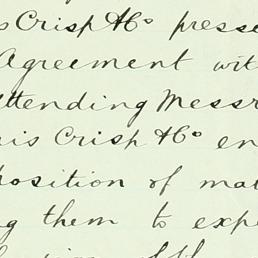 s Crisp & Co presse
Agreement wit
ttending Messr
ris Crisp & Co en
position of mat
ng them to expe